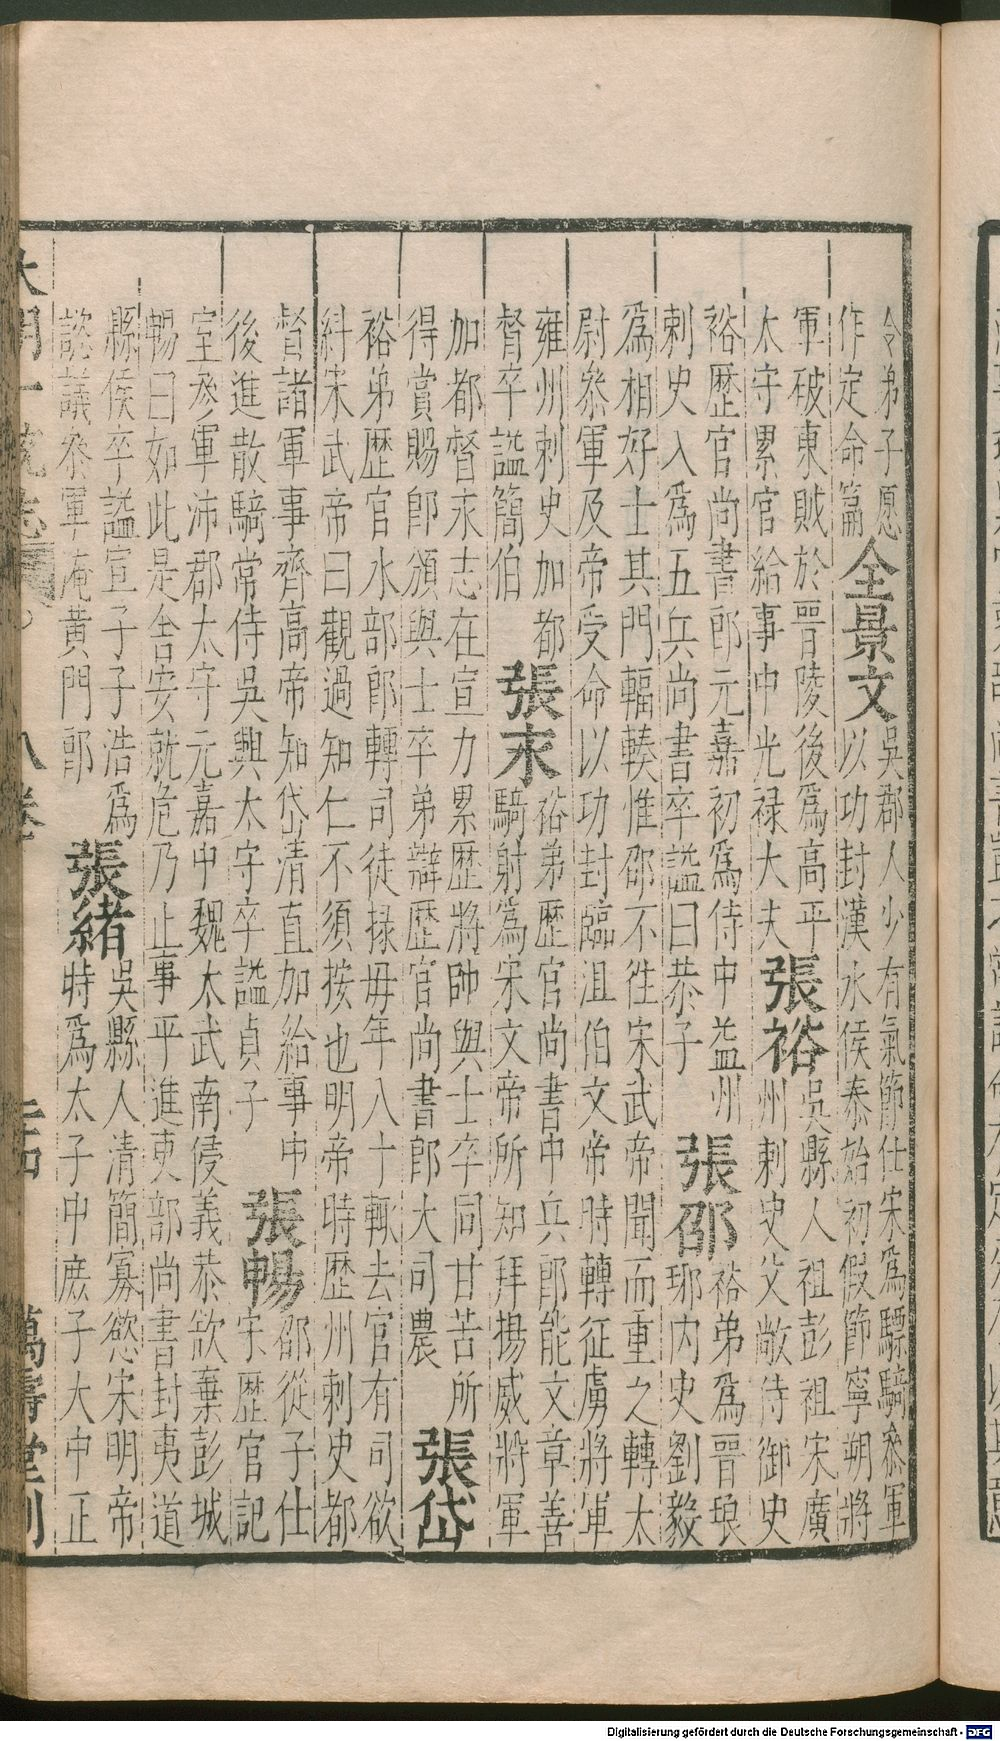 令弟子愿
作定命篇
全景文
吳郡人少有氣節仕宋爲驃騎叅軍
以功封漢水侯泰始初假節寧朔將
軍破東賊於晋陵後爲高平
太守累官給事中光禄大夫
張裕
吳縣人祖彭祖宋廣
州刺史父敞侍御史
裕歷官尚書郎元嘉初爲侍中益州
刺史入爲五兵尚書卒謚曰恭子
張邵
裕弟爲晉琅
琊内史劉毅
爲相好士其門輻輳惟邵不徃宋武帝聞而重之轉太
尉叅軍及帝受命以功封臨沮伯文帝時轉征虜將軍
雍州刺史加都
督卒謚簡伯
張永
裕弟歷官尚書中兵郎能文章善
騎射爲宋文帝所知拜揚威將軍
加都督永志在宣力累歷將帥與士卒同甘苦所
得賞賜卽頒與士卒弟辯歷官尚書郎大司農
張岱
裕弟歷官水部郎轉司徒掾母年八十輙去官有司欲
糾宋武帝曰觀過知仁不須按也明帝時歷州刺史都
督諸軍事齊高帝知岱清直加給事中
後進散騎常侍吳興太守卒謚貞子
張暢
邵從子仕
宋歷官記
室叅軍沛郡太守元嘉中魏太武南侵義恭欲棄彭城
暢曰如此是舍安就危乃止事平進吏部尚書封夷道
縣侯卒謚宣子子浩爲
諮議叅軍淹黄門郎
張緒
吳縣人清簡寡慾宋明帝
時爲太子中庶子大中正
大明一統志 八卷 二十四 萬壽堂刊
Digitalisierung gefördert durch die Deutsche Forschungsgemeinschaft - DFG